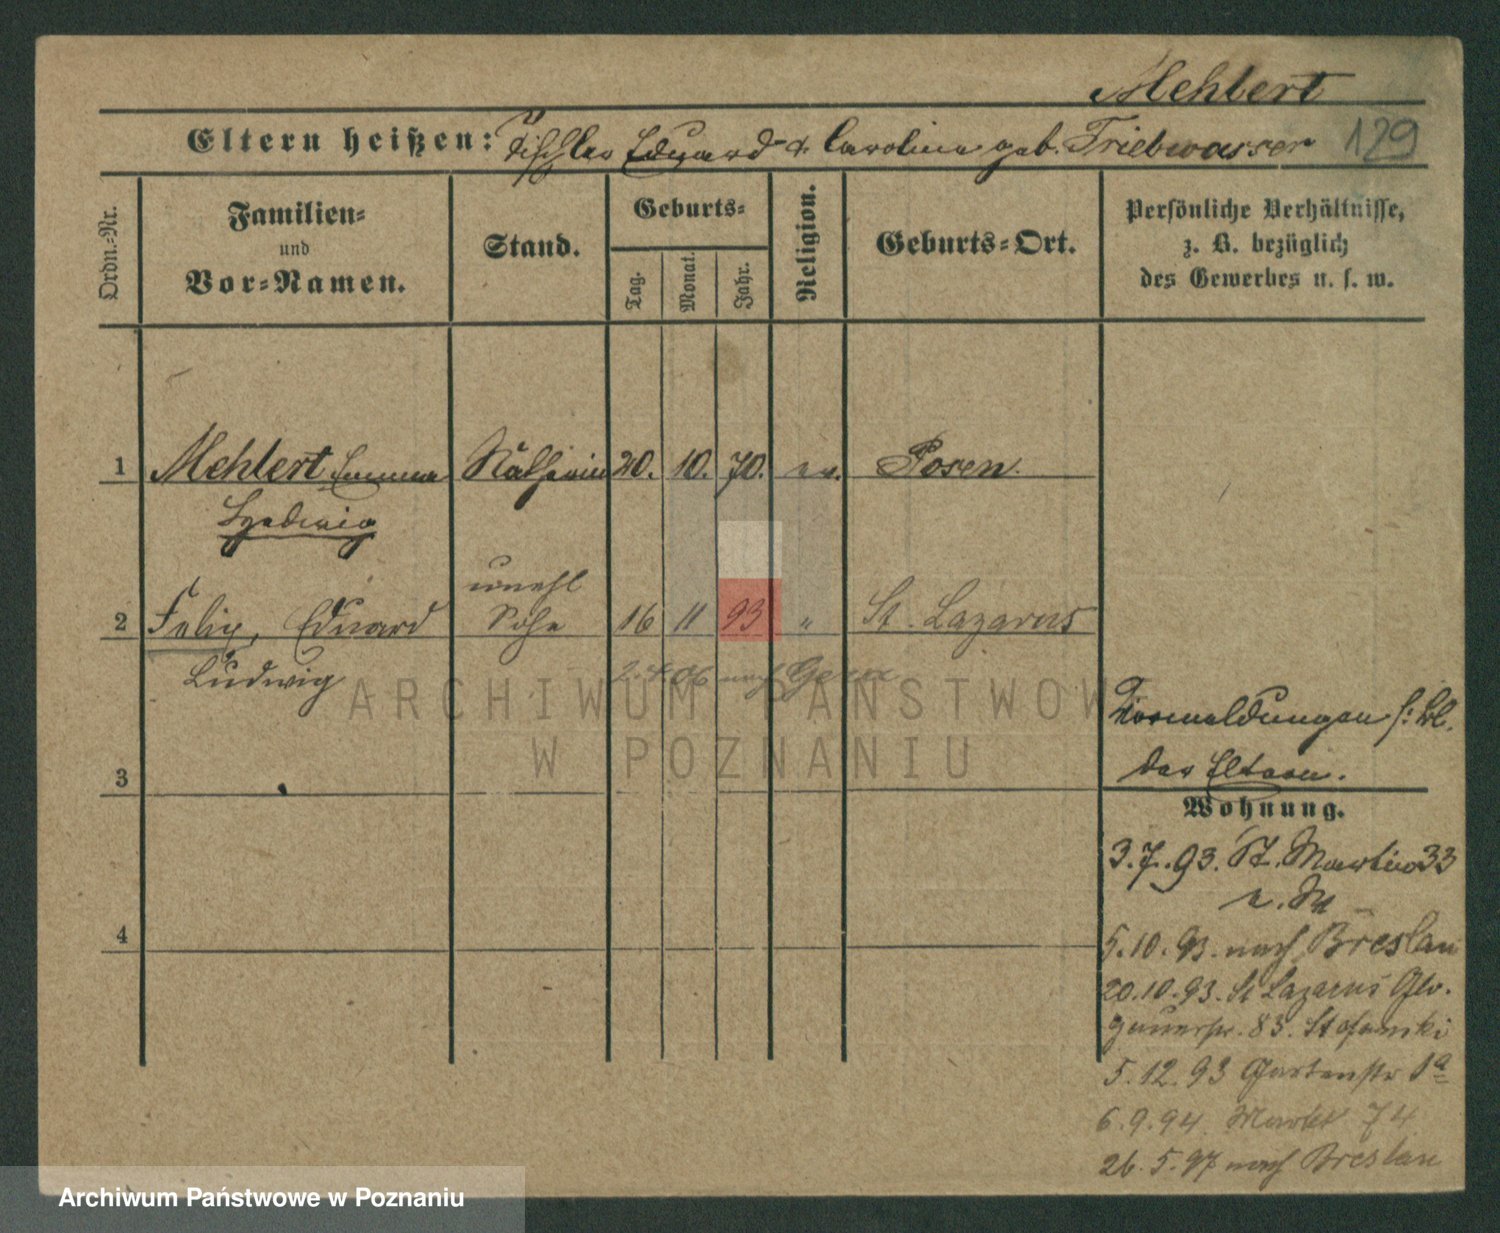 Mehlert
Eltern heißen: Tischler Eduard & Carolina geb. Triebwasser 129
Ordn.-Nr.
Familien-
und
Vor-Namen.
Stand.
Geburts-
Tag.
Monat.
Jahr.
Religion.
Geburts-Ort.
Persönliche Verhältnisse,
z. B. bezüglich
des Gewerbes u. s. w.
1 Mehlert Emma Nätherin 20. 10. 70. ev. Posen
Hedwig
unehl
2 Felix, Eduard Sohn 16 11 93 " St. Lazarus
Ludwig
2.4.06 nach
ARCHIWUM PAŃSTWOWE
W POZNANIU
Vormeldungen s: bl.
der Eltern.
3
Wohnung.
3.7.93. St. Martin 33
4
5.10.93. nach Breslau
20.10.93. St Lazarus Glo.
gauerstr. 83.
5.12.93 Gartenstr 1a
6.9.94. Markt 74
26.5.97 nach Breslau
Archiwum Państwowe w Poznaniu